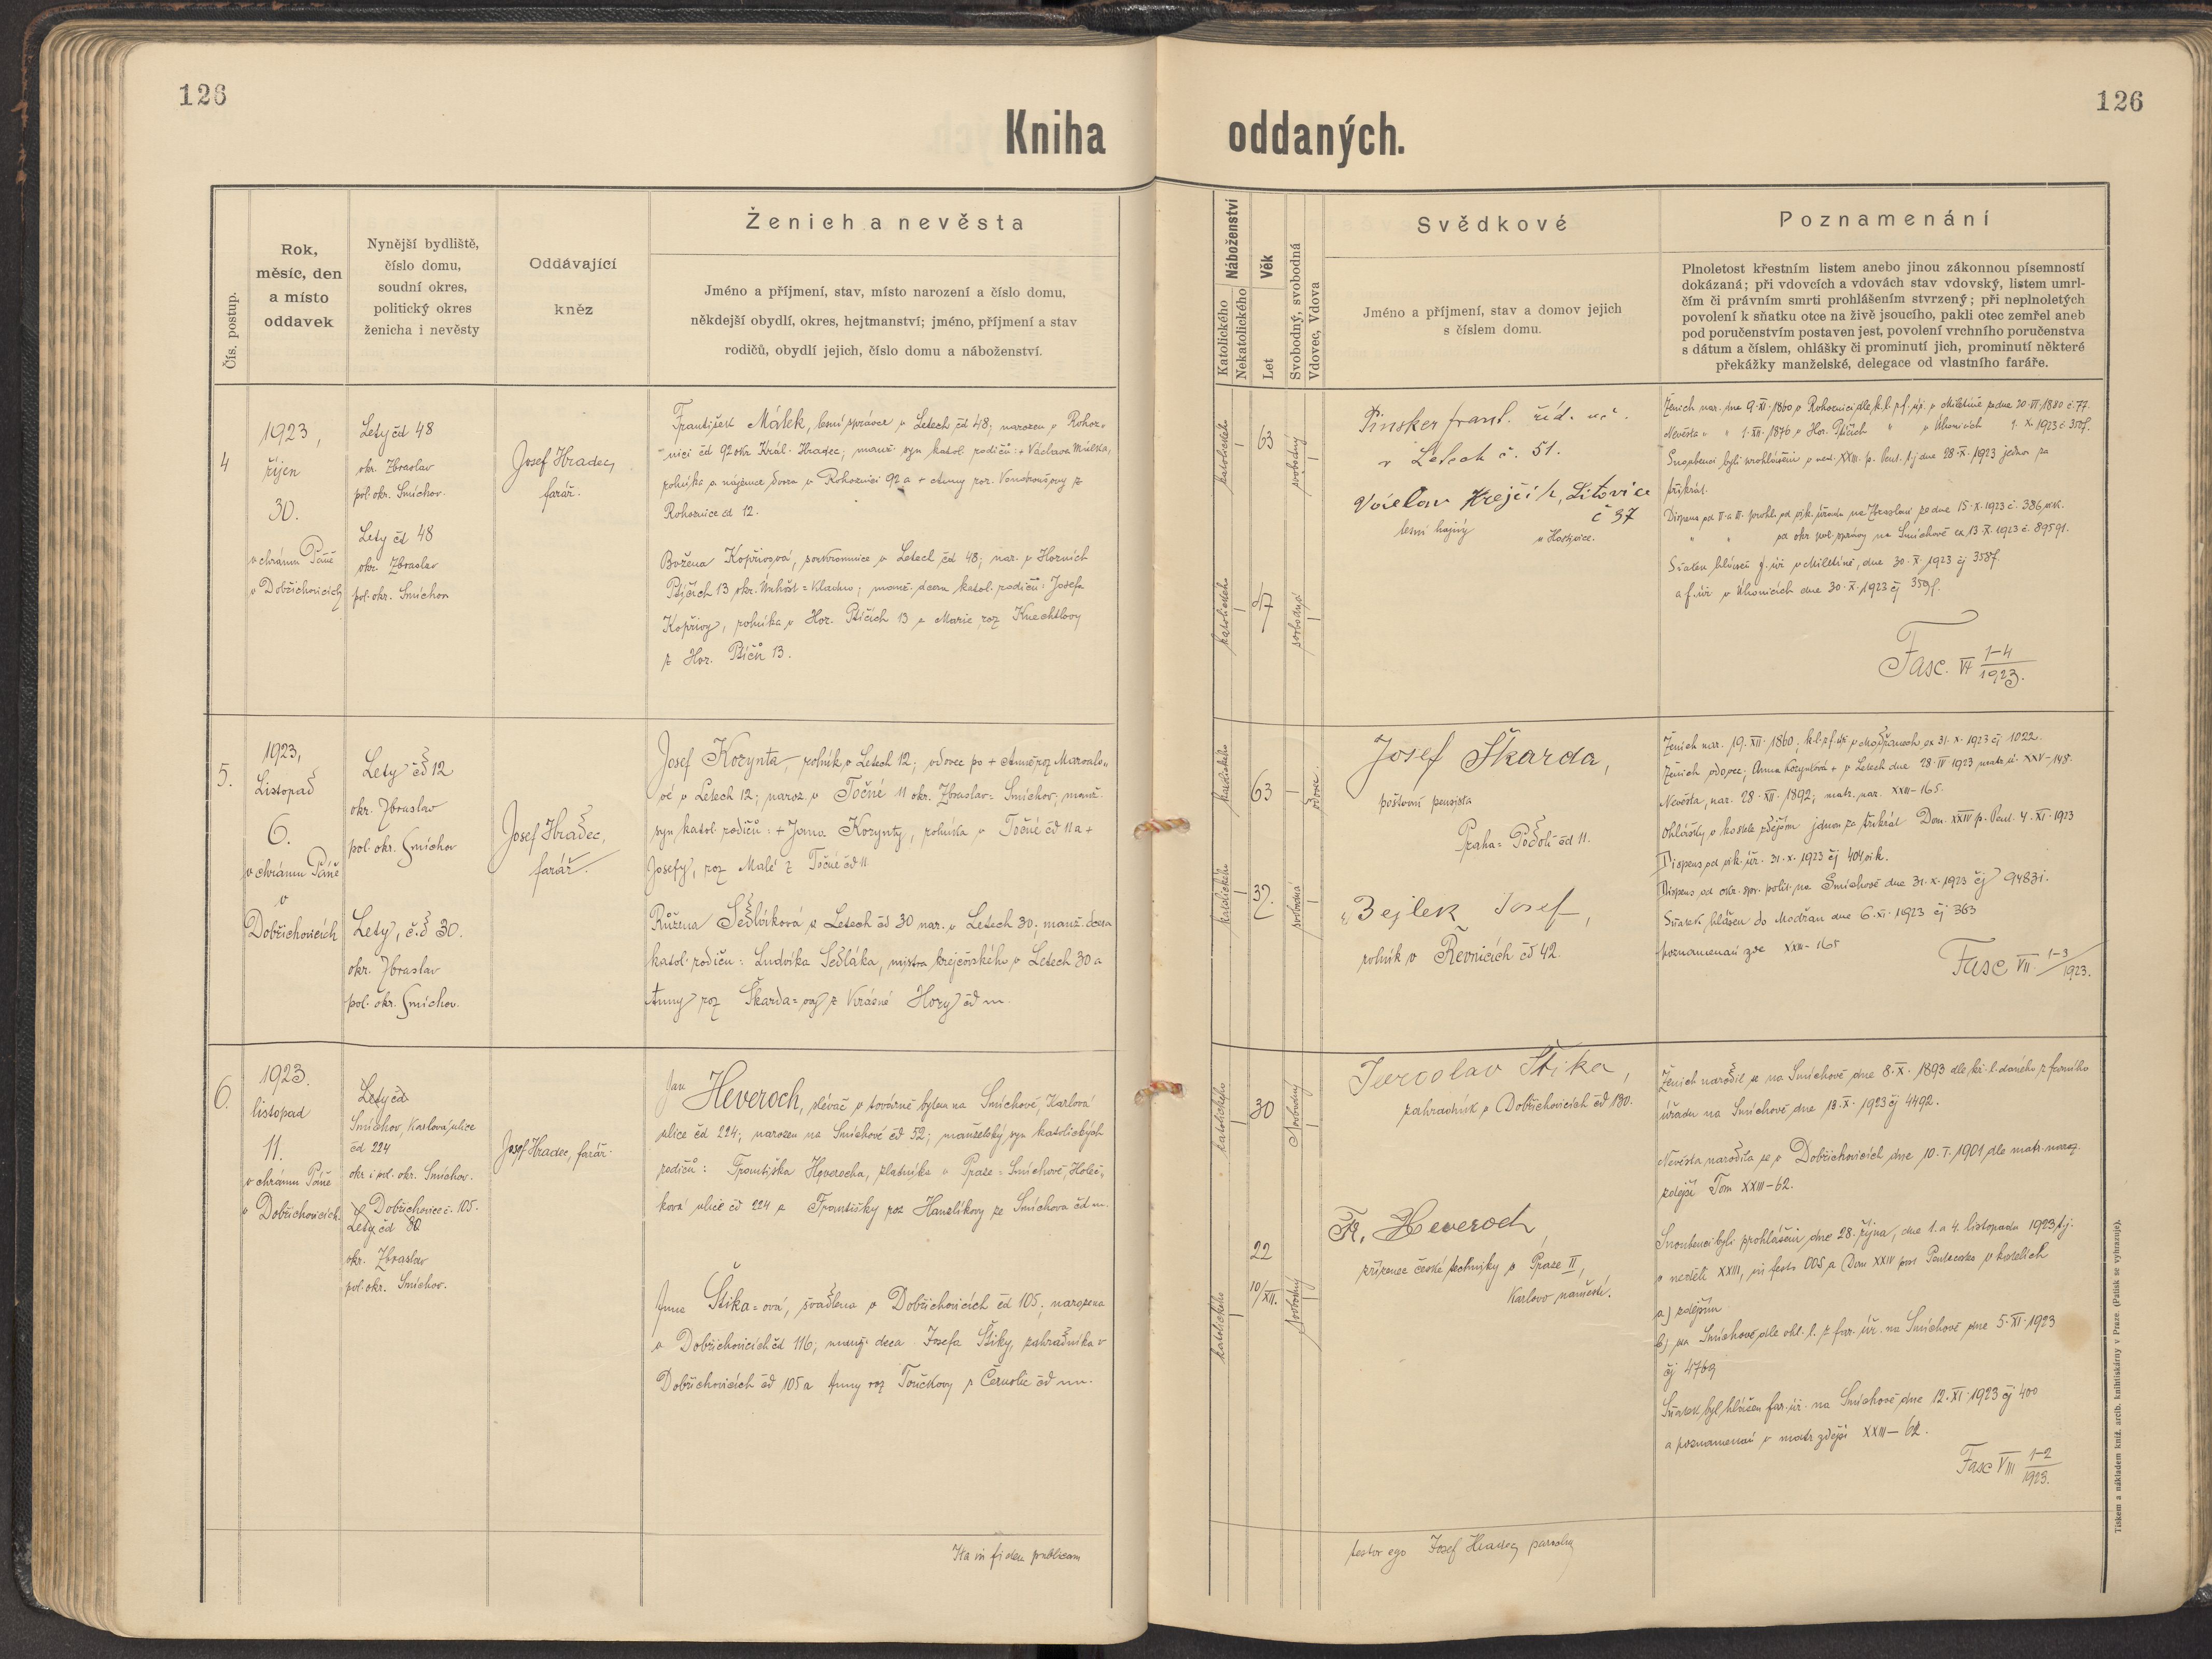 126
126
Kniha oddaných.
Čís. postup.
Rok,
měsíc, den
a místo
oddavek
Nynější bydliště,
číslo domu,
soudní okres,
politický okres
ženicha i nevěsty
Oddávající
kněz
Ženich a nevěsta
Jméno a příjmení, stav, místo narození a číslo domu,
někdejší obydlí, okres, hejtmanství; jméno, příjmení a stav
rodičů, obydlí jejich, číslo domu a náboženství.
Náboženství
Katolického
Nekatolického
Věk
Let
Svobodný, svobodná
Vdovec, Vdova
Svědkové
Jméno a příjmení, stav a domov jejich
s číslem domu.
Poznamenání
Plnoletost křestním listem anebo jinou zákonnou písemností
dokázaná; při vdovcích a vdovách stav vdovský, listem umrl-
čím či právním smrti prohlášením stvrzený; při neplnoletých
povolení k sňatku otce na živě jsoucího, pakli otec zemřel aneb
pod poručenstvím postaven jest, povolení vrchního poručenstva
s dátum a číslem, ohlášky či prominutí jich, prominutí některé
překážky manželské, delegace od vlastního faráře.
4
1923,
říjen
30.
v chrámu Páně
v Dobřichovicích
Lety čd 48
okr. Zbraslav
pol. okr. Smíchov.
Lety čd 48
okr. Zbraslav
pol. okr. Smíchov
Josef Hradec,
farář.
František Málek, lesní správce v Letech čd 48; narozen v Rohoz-
nici čd 92 okr Král. Hradec; manž. syn katol. rodičů: + Václava Málka,
rolníka a nájemce dvora v Rohoznici 92 a + Anny roz. z
Rohoznice čd 12.
Božena Kopřivová, soukromnice v Letech čd 48; nar. v Horních
Ptičích 13 okr. Unhošť = Kladno; manž. dcera katol. rodičů: Josefa
Kopřivy, rolníka v Hor. Ptičích 13 a Marie roz Knechtlovy
z Hor. Ptičů 13.
katolického
63
svobodný
katolického
47
svobodná
Pinsker Frant. říd. uč.
v Letech č. 51.
Václav Krejčík, Litovice
č 37
lesní hajný
u Hostivice.
Ženich nar. dne 9. XI. 1860 v Rohoznici dle k. l. f. úř. v Miletíně ze dne 20. VI. 1880 č. 77.
Nevěsta " " 1. XII. 1876 v Hor. Ptičích " v Úhonicích 1. X. 1923 č. 352f.
Snoubenci byli prohlášeni v ned. XXIII. p. Pent. t.j. dne 28. X. 1923 jednou za
třikrát.
Dispens od II. a III. prohl. od vik. úřadu na Zbraslavi ze dne 15. X. 1923 č. 386 vik.
" " za okr. pol. správy na Smíchově ex 13. X. 1923 č. 89591.
Sňatek hlášen f. úři v Miletíně, dne 30. X. 1923 čj 358f.
a f. úři v Úhonicích dne 30. X. 1923 čj 359f.
Fasc. VI 1-4/1923.
5.
1923,
Listopad
6.
v chrámu Páně
v
Dobřichovicích
Lety čd 12
okr. Zbraslav
pol. okr. Smíchov
Lety, č.d 30.
okr. Zbraslav
pol. okr. Smíchov.
Josef Hradec,
farář.
Josef Kozynta, rolník v Letech 12; vdovec po + Anně roz
vé v Letech 12; naroz. v Točné 11 okr. Zbraslav = Smíchov; manž.
syn katol. rodičů: + Jana Kozynty, rolníka v Točné čd 11 a +
Josefy, roz Malé z Točné čd 11
Růžena Sedláková z Letech čd 30 nar. v Letech 30; manž. dcera
katol. rodičů: Ludvíka Sedláka, mistra krejčovského v Letech 30 a
Anny roz Škarda = ovy z Krásné Hory čd nn.
katolického
63
vdovec
katolického
32.
svobodná
Josef Škarda,
poštovní pensista
Praha = Podolí čd 11.
Bejlek Josef,
rolník v Řevnicích čd 42.
Ženich nar. 19. XII. 1860; k.l. z f. úř v Modřanech ex 31. X. 1923 čj 1022.
Ženich vdovec; Anna Kozyntová + v Letech dne 28. IV 1923 matr. ú. XXV-148.
Nevěsta, nar. 28. XII. 1892; matr. nar. XXIII-165.
Ohlášky v kostele zdejším jednou za třikrát Dom. XXIV p. Pent. 4. XI. 1923
Dispens od vik. úř. 31. X. 1923 čj 404 vik.
Dispens od okr. spr. polit. na Smíchově dne 31. X. 1923 čj 94831.
Sňatek hlášen do Modřan dne 6. XI. 1923 čj 363
poznamenán zde XXIII-165
Fasc VII. 1-3/1923.
6.
1923.
listopad
11.
v chrámu Páně
v Dobřichovicích.
Lety čd
Smíchov, Karlova ulice
čd 224
okr. i pol. okr. Smíchov.
Dobřichovice č. 105.
Lety čd 80
okr. Zbraslav
pol. okr. Smíchov.
Josef Hradec, farář.
Jan Heveroch, slévač v továrně bytem na Smíchově, Karlova
ulice čd 224; narozen na Smíchově čd 52; manželský syn katolických
rodičů: Františka Heverocha, zlatníka v Praze = Smíchově, Holeč-
kova ulice čd 224 a Františky roz Hanzlíkovy ze Smíchova čd nn.
Anna Štika = ová, švadlena v Dobřichovicích čd 105; narozena
v Dobřichovicích čd 116; manž. dcera Josefa Štiky, zahradníka v
Dobřichovicích čd 105 a Anny roz Toučkovy z Černolic čd nn.
katolického
30
svobodný
katolického
22
10/XII.
svobodný
Jaroslav Štika,
zahradník v Dobřichovicích čd 130.
Fr. Heveroch,
zřízenec české techniky v Praze II,
Karlovo náměstí.
Ženich narodil se na Smíchově dne 8. X. 1893 dle kř. l. daného z farního
úřadu na Smíchově dne 13. X. 1923 čj 4492.
Nevěsta narodila se v Dobřichovicích dne 10. I. 1901 dle matr. naroz.
zdejší Tom XXIII-62.
Snoubenci byli prohlášeni dne 28. října, dne 1. a 4. listopadu 1923 t.j.
v neděli XXIII, in festo OOS a Dom XXIV post Pentecosten v kostelích
a) zdejším
b) na Smíchově, dle ohl. l. z far. úř. na Smíchově dne 5. XI. 1923
čj 4769
Sňatek byl hlášen far. úř. na Smíchově dne 12. XI. 1923 čj 400
a poznamenán v matr. zdejší XXIII-62.
Fasc VIII 1-2/1923.
Ita in fidem publicam
testor ego Josef Hradec parochus
Tiskem a nákladem kníž. arcib. knihtiskárny v Praze. (Patisk se vyhrazuje).